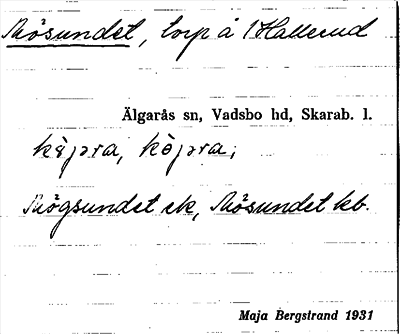 Mösundet, torp å 1 Hallerud
Älgarås sn, Vadsbo hd, Skarab. l.
köpra, köpra;
Mögsundet ek, Mösundet kb.
Maja Bergstrand 1931